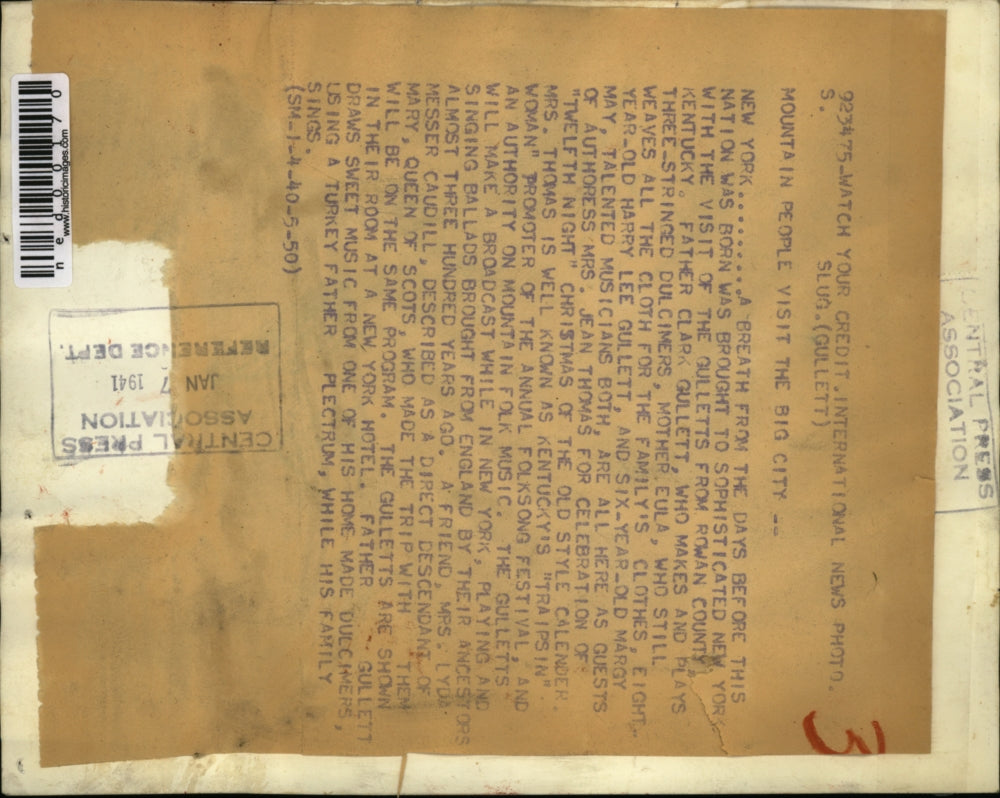 923475-WATCH YOUR CREDIT.INTERNATIONAL NEWS PHOTO.
S. SLUG.(GULLETT)
MOUNTAIN PEOPLE VISIT THE BIG CITY --
NEW YORK.........A BREATH FROM THE DAYS BEFORE THIS
NATION WAS BORN WAS BROUGHT TO SOPHISTICATED NEW YORK
WITH THE VISIT OF THE GULLETTS FROM ROWAN COUNTY,
KENTUCKY. FATHER CLARK GULLETT, WHO MAKES AND PLAYS
THREE-STRINGED DULCIMERS, MOTHER EULA, WHO STILL
WEAVES ALL THE CLOTH FOR THE FAMILY'S CLOTHES, EIGHT-
YEAR-OLD HARRY LEE GULLETT, AND SIX-YEAR-OLD MARGY
MAY, TALENTED MUSICIANS BOTH, ARE ALL HERE AS GUESTS
OF AUTHORESS MRS. JEAN THOMAS FOR CELEBRATION OF
"TWELFTH NIGHT" CHRISTMAS OF THE OLD STYLE CALENDER.
MRS. THOMAS IS WELL KNOWN AS KENTUCKY'S "TRAIPSIN"
WOMAN" PROMOTER OF THE ANNUAL FOLKSONG FESTIVAL, AND
AN AUTHORITY ON MOUNTAIN FOLK MUSIC. THE GULLETTS
WILL MAKE A BROADCAST WHILE IN NEW YORK, PLAYING AND
SINGING BALLADS BROUGHT FROM ENGLAND BY THEIR ANCESTORS
ALMOST THREE HUNDRED YEARS AGO. A FRIEND, MRS. LYDA
MESSER CAUDILL, DESCRIBED AS A DIRECT DESCENDANT OF
MARY, QUEEN OF SCOTS, WHO MADE THE TRIP WITH THEM
WILL BE ON THE SAME PROGRAM. THE GULLETTS ARE SHOWN
IN THEIR ROOM AT A NEW YORK HOTEL. FATHER GULLETT
DRAWS SWEET MUSIC FROM ONE OF HIS HOME MADE DULCIMERS,
USING A TURKEY FATHER PLECTRUM, WHILE HIS FAMILY
SINGS.
(SM-1-4-40-5-50)
3
CENTRAL PRESS
ASSOCIATION
CENTRAL PRESS
ASSOCIATION
JAN 7 1941
REFERENCE DEPT.
www.historicimages.com